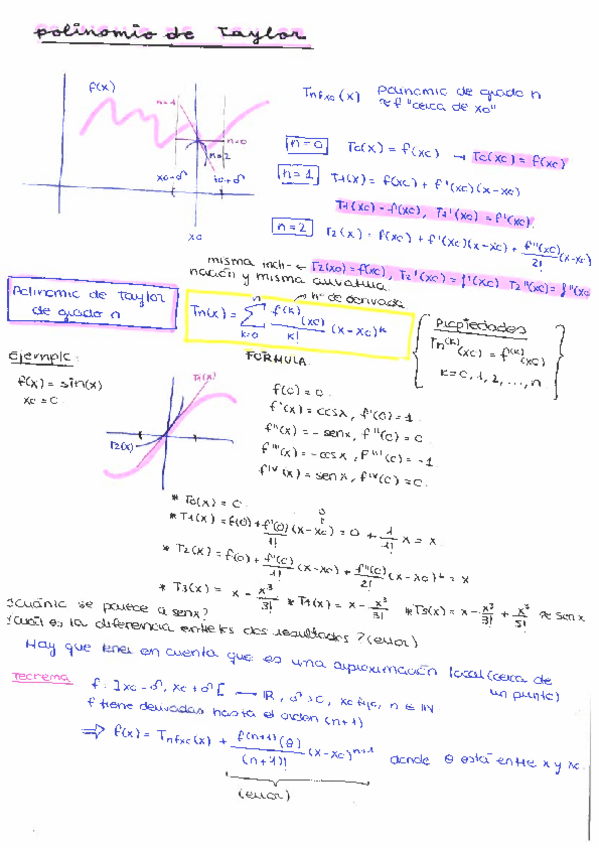 polinomio de Taylor
f(x)
n=1
n=0
n=2
x0-δ
x0+δ
x0
Tnfx0(x) polinomio de grado n
≈ f "cerca de x0"
n=0 T0(x) = f(x0) → T0(x0) = f(x0)
n=1 T1(x) = f(x0) + f'(x0)(x-x0)
T1(x0) = f(x0), T1'(x0) = f'(x0).
n=2 T2(x) = f(x0) + f'(x0)(x-x0) + f''(x0)/2! (x-x0)
misma incli- ← T2(x0) = f(x0), T2'(x0) = f'(x0) T2''(x0) = f''(x0
nación y misma curvatura.
Polinomio de Taylor
de grado n
→ nº de derivada
Tn(x) = ∑ n k=0 f(k)(x0)/k! (x-x0)k
FÓRMULA.
Propiedades
Tn(k)(x0) = f(k)(x0)
k=0,1,2,...,n
ejemplo:
f(x) = sin(x)
x0 = 0
T1(x)
T2(x)
f(0) = 0.
f'(x) = cosx, f'(0) = 1.
f''(x) = -senx, f''(0) = 0.
f'''(x) = -cosx, f'''(0) = -1.
fIV(x) = senx, fIV(0) = 0.
* T0(x) = 0.
* T1(x) = f(0) + f'(0)/1! (x-x0) = 0 + 1/1! x = x.
0
* T2(x) = f(0) + f'(0)/1! (x-x0) + f''(0)/2! (x-x0)² = x
* T3(x) = x - x³/3! * T4(x) = x - x³/3! * T5(x) = x - x³/3! + x⁵/5! ≈ senx
¿Cuánto se parece a senx?
¿Cuál es la diferencia entre los dos resultados? (error)
Hay que tener en cuenta que es una aproximación local (cerca de
un punto)
Teorema f: ]x0-δ, x0+δ[ → IR, δ>0, x0 fijo, n ∈ IN
f tiene derivadas hasta el orden (n+1)
⇒ f(x) = Tnfx0(x) + f(n+1)(θ)/(n+1)! (x-x0)n+1 donde θ está entre x y x0.
(error)